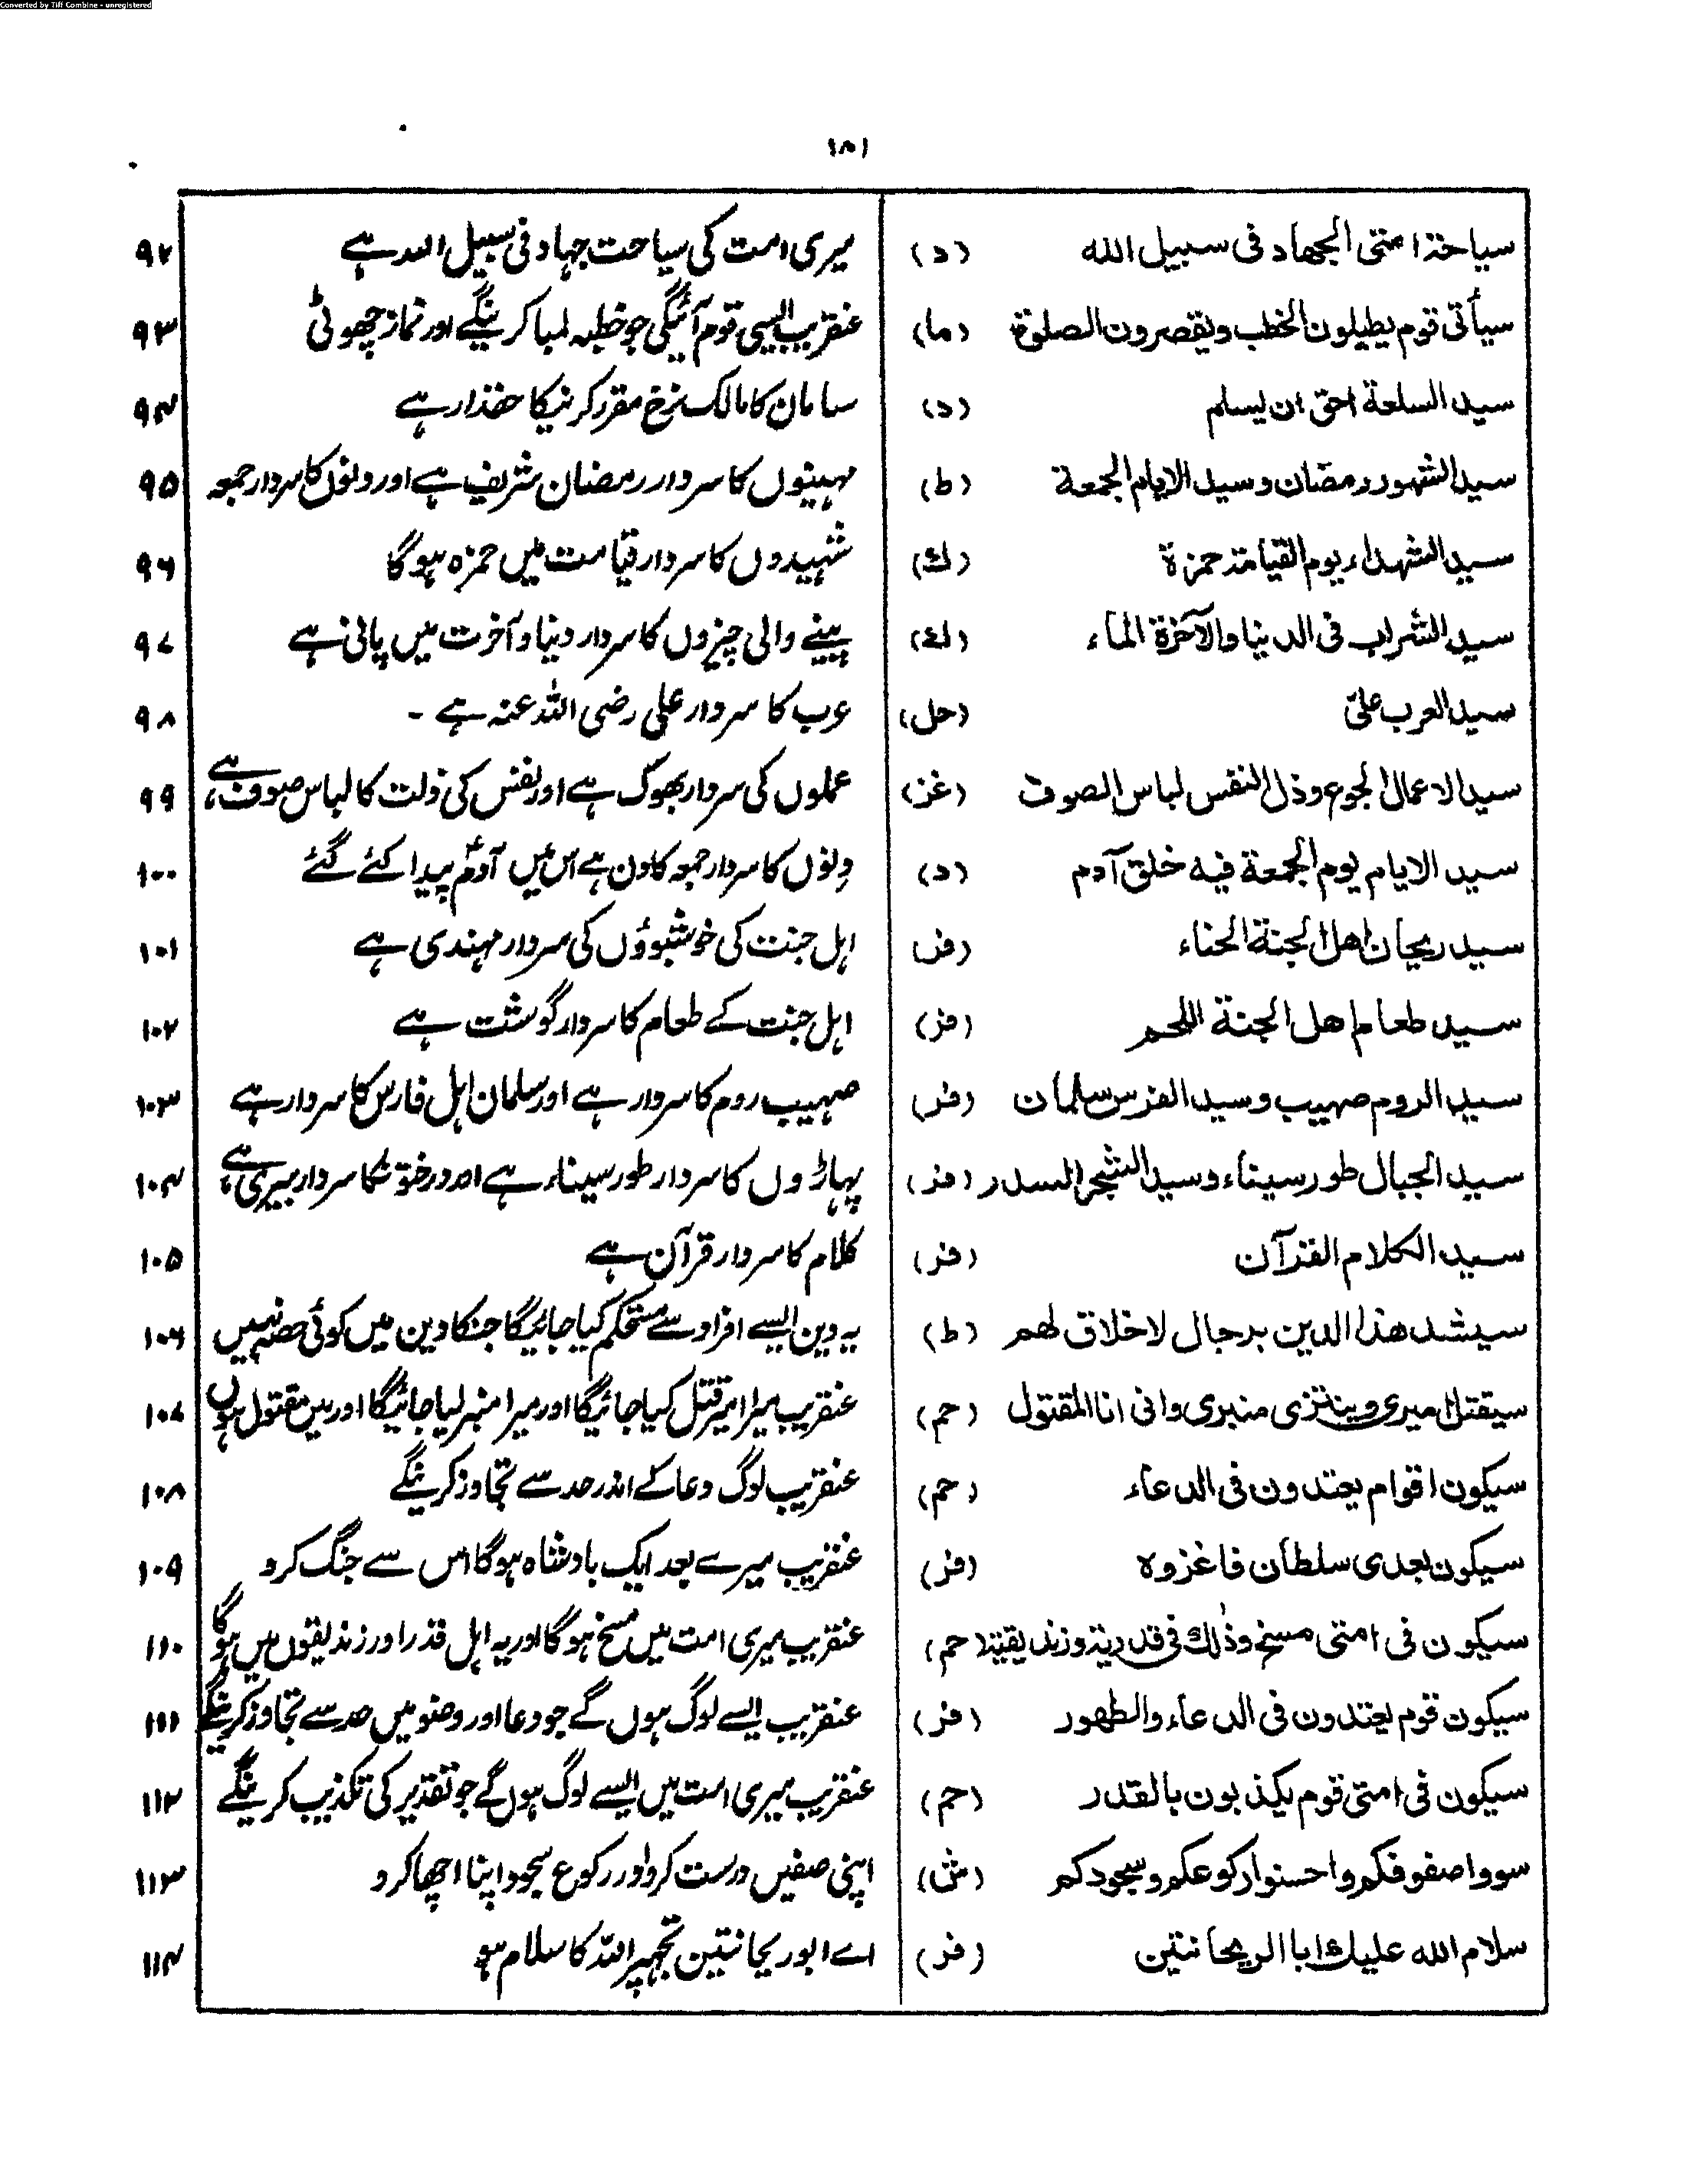 Converted by Tiff Combine - unregistered
۱۸۱
سیاحۃ امتی الجھاد فی سبیل اللہ (د) میری امت کی سیاحت جہاد فی سبیل اللہ ہے ۹۲
سیأتی قوم یطیلون الخطب ویقصرون الصلوۃ (ما) عنقریب ایسی قوم آئیگی جو خطبہ لمبا کرینگے اور نماز چھوٹی ۹۳
سید السلعۃ احق ان یسلم (د) سامان کا مالک نرخ مقرر کرنیکا حقدار ہے ۹۴
سید الشہور رمضان وسید الایام الجمعۃ (ط) مہینوں کا سردار رمضان شریف ہے اور دنوں کا سردار جمعہ ۹۵
سید الشہداء یوم القیامۃ حمزۃ (ك) شہیدوں کا سردار قیامت میں حمزہ ہوگا ۹۶
سید الشراب فی الدنیا والآخرۃ الماء (ك) پینے والی چیزوں کا سردار دنیا و آخرت میں پانی ہے ۹۷
سید العرب علیّ (حل) عرب کا سردار علی رضی اللہ عنہ ہے - ۹۸
سید الاعمال الجوع وذل النفس لباس الصوف (غز) عملوں کی سردار بھوک ہے اور نفس کی ذلت کا لباس صوف ہے، ۹۹
سید الایام یوم الجمعۃ فیہ خلق آدم (د) دنوں کا سردار جمعہ کا دن ہے اس میں آدمؑ پیدا کئے گئے ۱۰۰
سید ریحان اھل الجنۃ الحناء (فر) اہل جنت کی خوشبوؤں کی سردار مہندی ہے ۱۰۱
سید طعام اھل الجنۃ اللحم (فر) اہل جنت کے طعام کا سردار گوشت ہے ۱۰۲
سید الروم صہیب وسید الفرس سلمان (فر) صہیب روم کا سردار ہے اور سلمان اہل فارس کا سردار ہے ۱۰۳
سید الجبال طور سیناء وسید الشجر السدر (فر) پہاڑوں کا سردار طور سیناء ہے اور درختوں کا سردار بیری ہے، ۱۰۴
سید الکلام القرآن (فر) کلام کا سردار قرآن ہے ۱۰۵
سیشد ھذا الدین برجال لا خلاق لھم (ط) یہ دین ایسے افراد سے مستحکم کیا جائیگا جنکا دین میں کوئی حصہ نہیں ۱۰۶
سیقتل امیری وینتزی منبری وانی انا المقتول (حم) عنقریب میرا امیر قتل کیا جائیگا اور میرا منبر لیا جائیگا اور میں مقتول ہوں ۱۰۷
سیکون اقوام یعتدون فی الدعاء (حم) عنقریب لوگ دعا کے اندر حد سے تجاوز کرینگے ۱۰۸
سیکون بعدی سلطان فاغزوہ (فر) عنقریب میرے بعد ایک بادشاہ ہوگا اس سے جنگ کرو ۱۰۹
سیکون فی امتی مسخ وذلك فی قدریۃ وزندیقیۃ (حم) عنقریب میری امت میں مسخ ہوگا اور یہ اہل قدر اور زندیقوں میں ہوگا ۱۱۰
سیکون قوم یعتدون فی الدعاء والطھور (فر) عنقریب ایسے لوگ ہوں گے جو دعا اور وضو میں حد سے تجاوز کرینگے ۱۱۱
سیکون فی امتی قوم یکذبون بالقدر (حم) عنقریب میری امت میں ایسے لوگ ہوں گے جو تقدیر کی تکذیب کرینگے ۱۱۲
سووا صفوفکم واحسنوا رکوعکم وسجودکم (ش) اپنی صفیں درست کرو اور رکوع سجود اپنا اچھا کرو ۱۱۳
سلام اللہ علیك ابا الریحانتین (فر) اے ابو ریحانتین تجھپر اللہ کا سلام ہو ۱۱۴